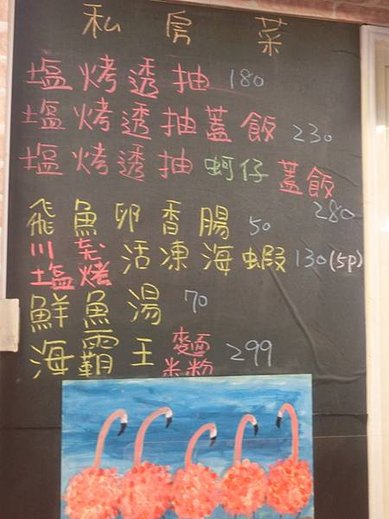 私房菜
塩烤透抽 180
塩烤透抽蓋飯 230
塩烤透抽蚵仔蓋飯 280
飛魚卵香腸 50
川燙 塩烤 活凍海蝦 130(5P)
鮮魚湯 70
海霸王 麵 米粉 299